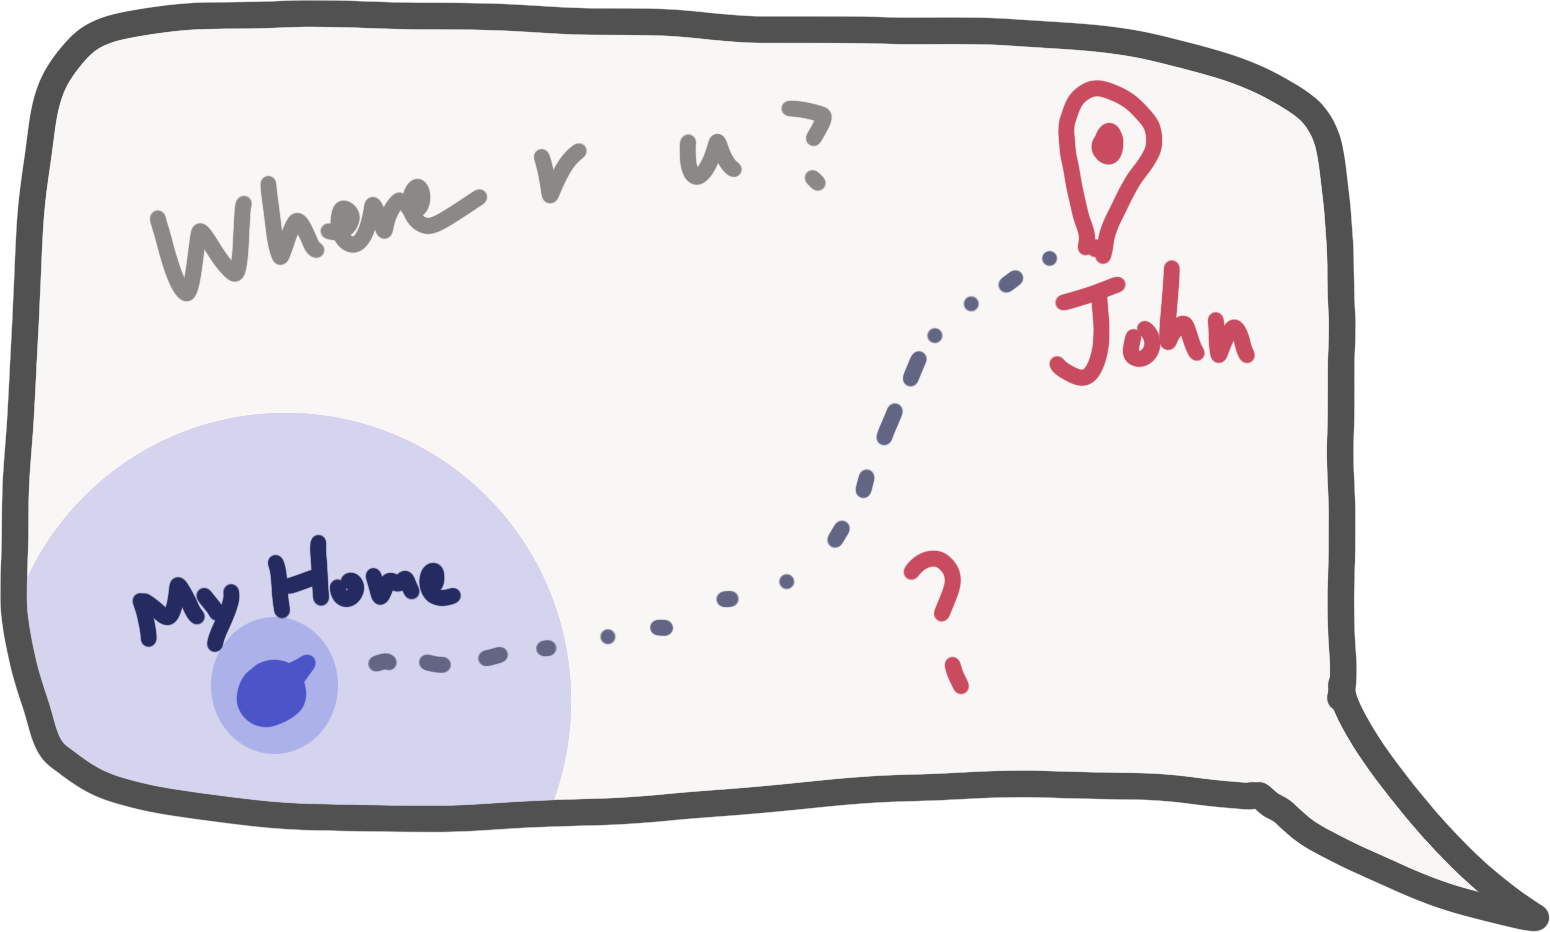 Where r u?
John
My Home
?